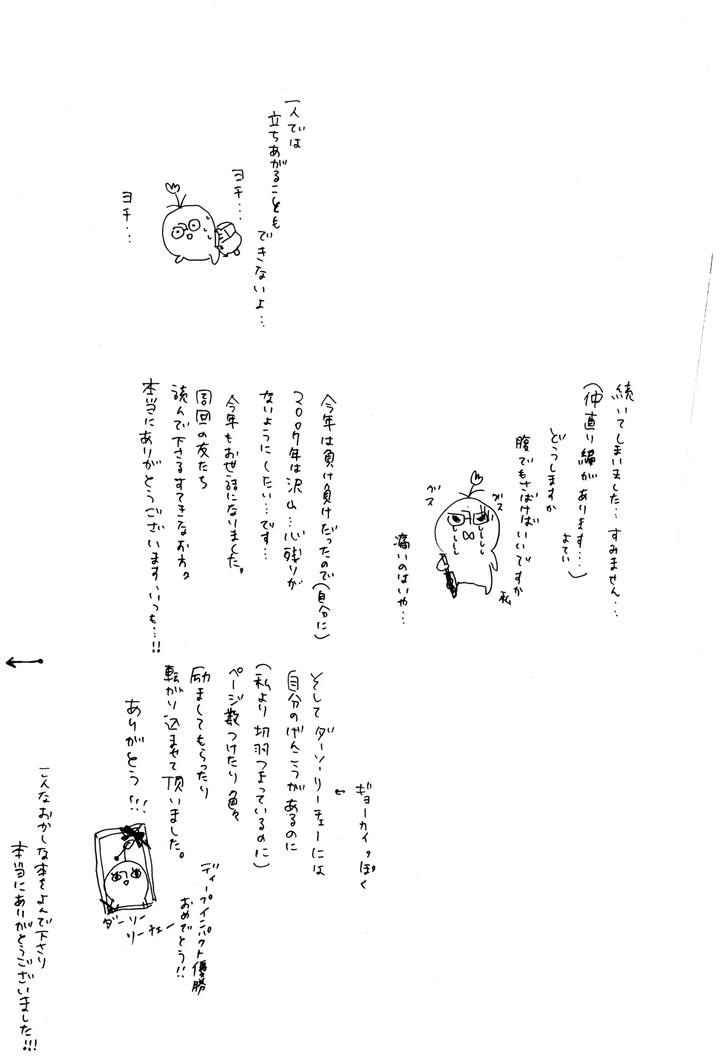 続いてしまいました…すみません…
(仲直り編があります…)
よてい
どうしますか
腹でもさばけばいいですか
私
グス
グス
痛いのはいや…
一人では
立ちあがることも
できないよ…
ヨチ…
ヨチ…
今年は負け負けだったので(自分に)
2007年は沢山…心残りが
ないようにしたい…です…
今年もお世話になりました。
周囲の友たち
読んで下さるすてきなお方。
本当にありがとうございます、いつも…!!
ギョーカイっぽく
そしてダーソーリーチェーには
自分のげんこうがあるのに
(私より切羽つまっているのに)
ページ数つけたり色々
励ましてもらったり
転がり込ませて頂いました。
ありがとう!!!
ディープインパクト優勝
おめでとう!!
ダーソー
リーチェー
こんなおかしな本をよんで下さり
本当にありがとうございました!!!